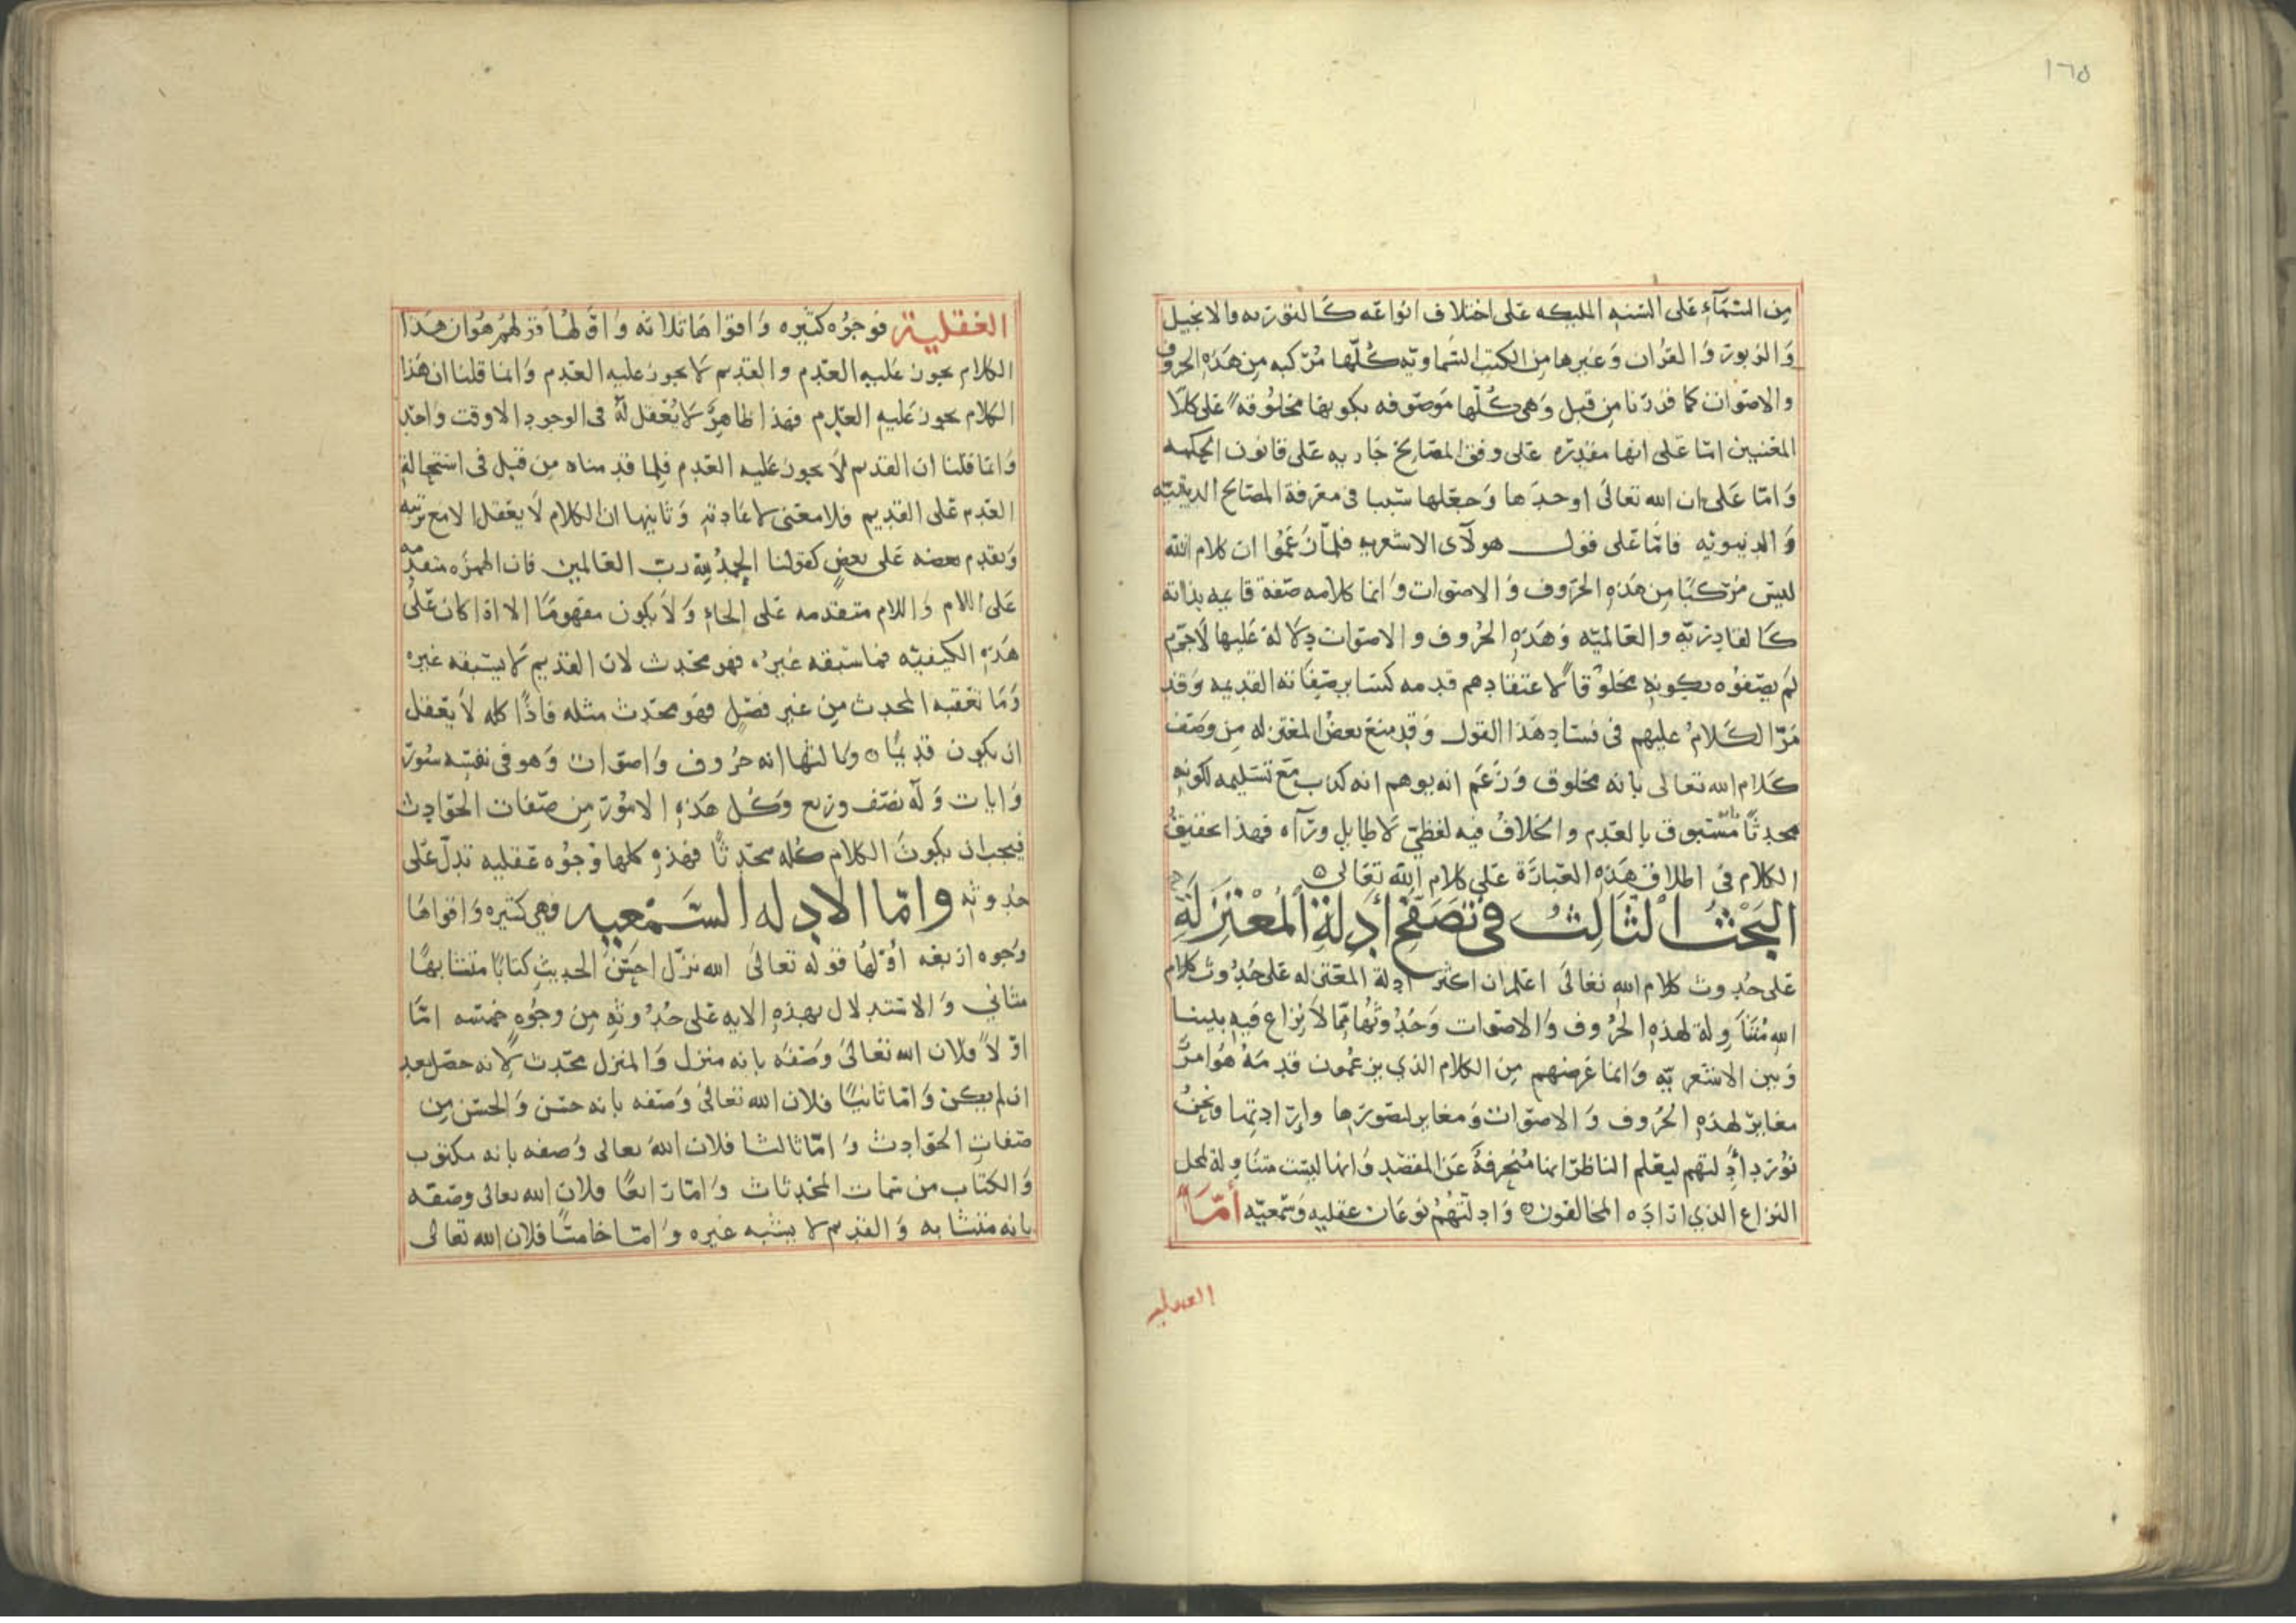 ١٦٥
من السمآء على السنه المليكه على اختلاف انواعه كالتورىه والانجيل
والزبور والقران وغيرها من الكتب السماويه كلها مركبه من هذه الحروف
والاصوات كما قررنا من قبل وهى كلها موصوفه بكونها مخلوقه على كلا
المعنيين اما على انها مقدره على وفق المصالح جاريه على قانون الحكمه
واما على ان الله تعالى اوحدها وجعلها سببا فى معرفة المصالح الدينيه
والدنيويه فاما على قول هولآى الاشعريه فلما زعموا ان كلام الله
ليس مركبا من هذه الحروف والاصوات وانما كلامه صفة قايمه بذاته
كالقادريه والعالميه وهذه الحروف والاصوات دلالة عليها لاجرم
لم يصفوه بكونه مخلوقا لاعتقادهم قدمه كساير صفاته القديمه وقد
مر الكلام عليهم فى فساد هذا القول وقد منع بعض المعتزله من وصف
كلام الله تعالى بانه مخلوق وزعم انه يوهم انه كذب مع تسليمه لكونه
محدثا مسبوق بالعدم والخلاف فيه لفظي لا طايل ورآه فهذا تحقيق
الكلام فى اطلاق هذه العبارة على كلام الله تعالى
البحث الثالث فى تصفح أدلة المعتزلة
على حدوث كلام الله تعالى اعلم ان اكثر ادلة المعتزله على حدوث كلام
الله متناولة لهذه الحروف والاصوات وحدوثها مما لا نزاع فيه بيننا
وبين الاشعريه وانما غرضهم من الكلام الذي يزعمون قدمه هو امر
مغاير لهذه الحروف والاصوات ومغاير لصورها وإرادتها ونحن
نورد أدلتهم ليعلم الناظر انها منحرفة عن المقصد وانها ليست متناولة لمحل
النزاع الذي اراده المخالفون وادلتهم نوعان عقليه وسمعيه أما
العقلية
العقلية فوجوه كثيره واقواها ثلاثه واولها قولهم هو ان هذا
الكلام يجوز عليه العدم والقديم لا يجوز عليه العدم وانما قلنا ان هذا
الكلام يجوز عليه العدم فهذا ظاهر لا يعقل له فى الوجود الا وقت واحد
وانما قلنا ان القديم لا يجوز عليه العدم فلما قدمناه من قبل فى استحالة
العدم على القديم فلا معنى لاعادته وثانيها ان الكلام لا يعقل الا مع ترتبه
وتقدم بعضه على بعض كقولنا الحمد لله رب العالمين فان الهمزه متقدمه
على اللام واللام متقدمه على الحاء ولا يكون مفهوما الا اذا كان على
هذه الكيفيه فما سبقه غيره فهو محدث لان القديم لا يسبقه غيره
وما تعقبه المحدث من غير فصل فهو محدث مثله فاذا كله لا يعقل
ان يكون قديما وثالثها انه حروف واصوات وهو فى نفسه سور
وايات وله نصف وربع وكل هذه الامور من صفات الحوادث
فيجب ان يكون الكلام كله محدثا فهذه كلها وجوه عقليه تدل على
حدوثه واما الادله السمعيه فهي كثيره واقواها
وجوه اربعه أولها قوله تعالى الله نزل احسن الحديث كتابا متشابها
مثاني والاستدلال بهذه الايه على حدوثه من وجوه خمسه اما
اولا فلان الله تعالى وصفه بانه منزل والمنزل محدث لانه حصل بعد
ان لم يكن واما ثانيا فلان الله تعالى وصفه بانه حسن والحسن من
صفات الحوادث واما ثالثا فلان الله تعالى وصفه بانه مكتوب
والكتاب من سمات المحدثات واما رابعا فلان الله تعالى وصفه
بانه متشابه والقديم لا يشبه غيره واما خامسا فلان الله تعالى